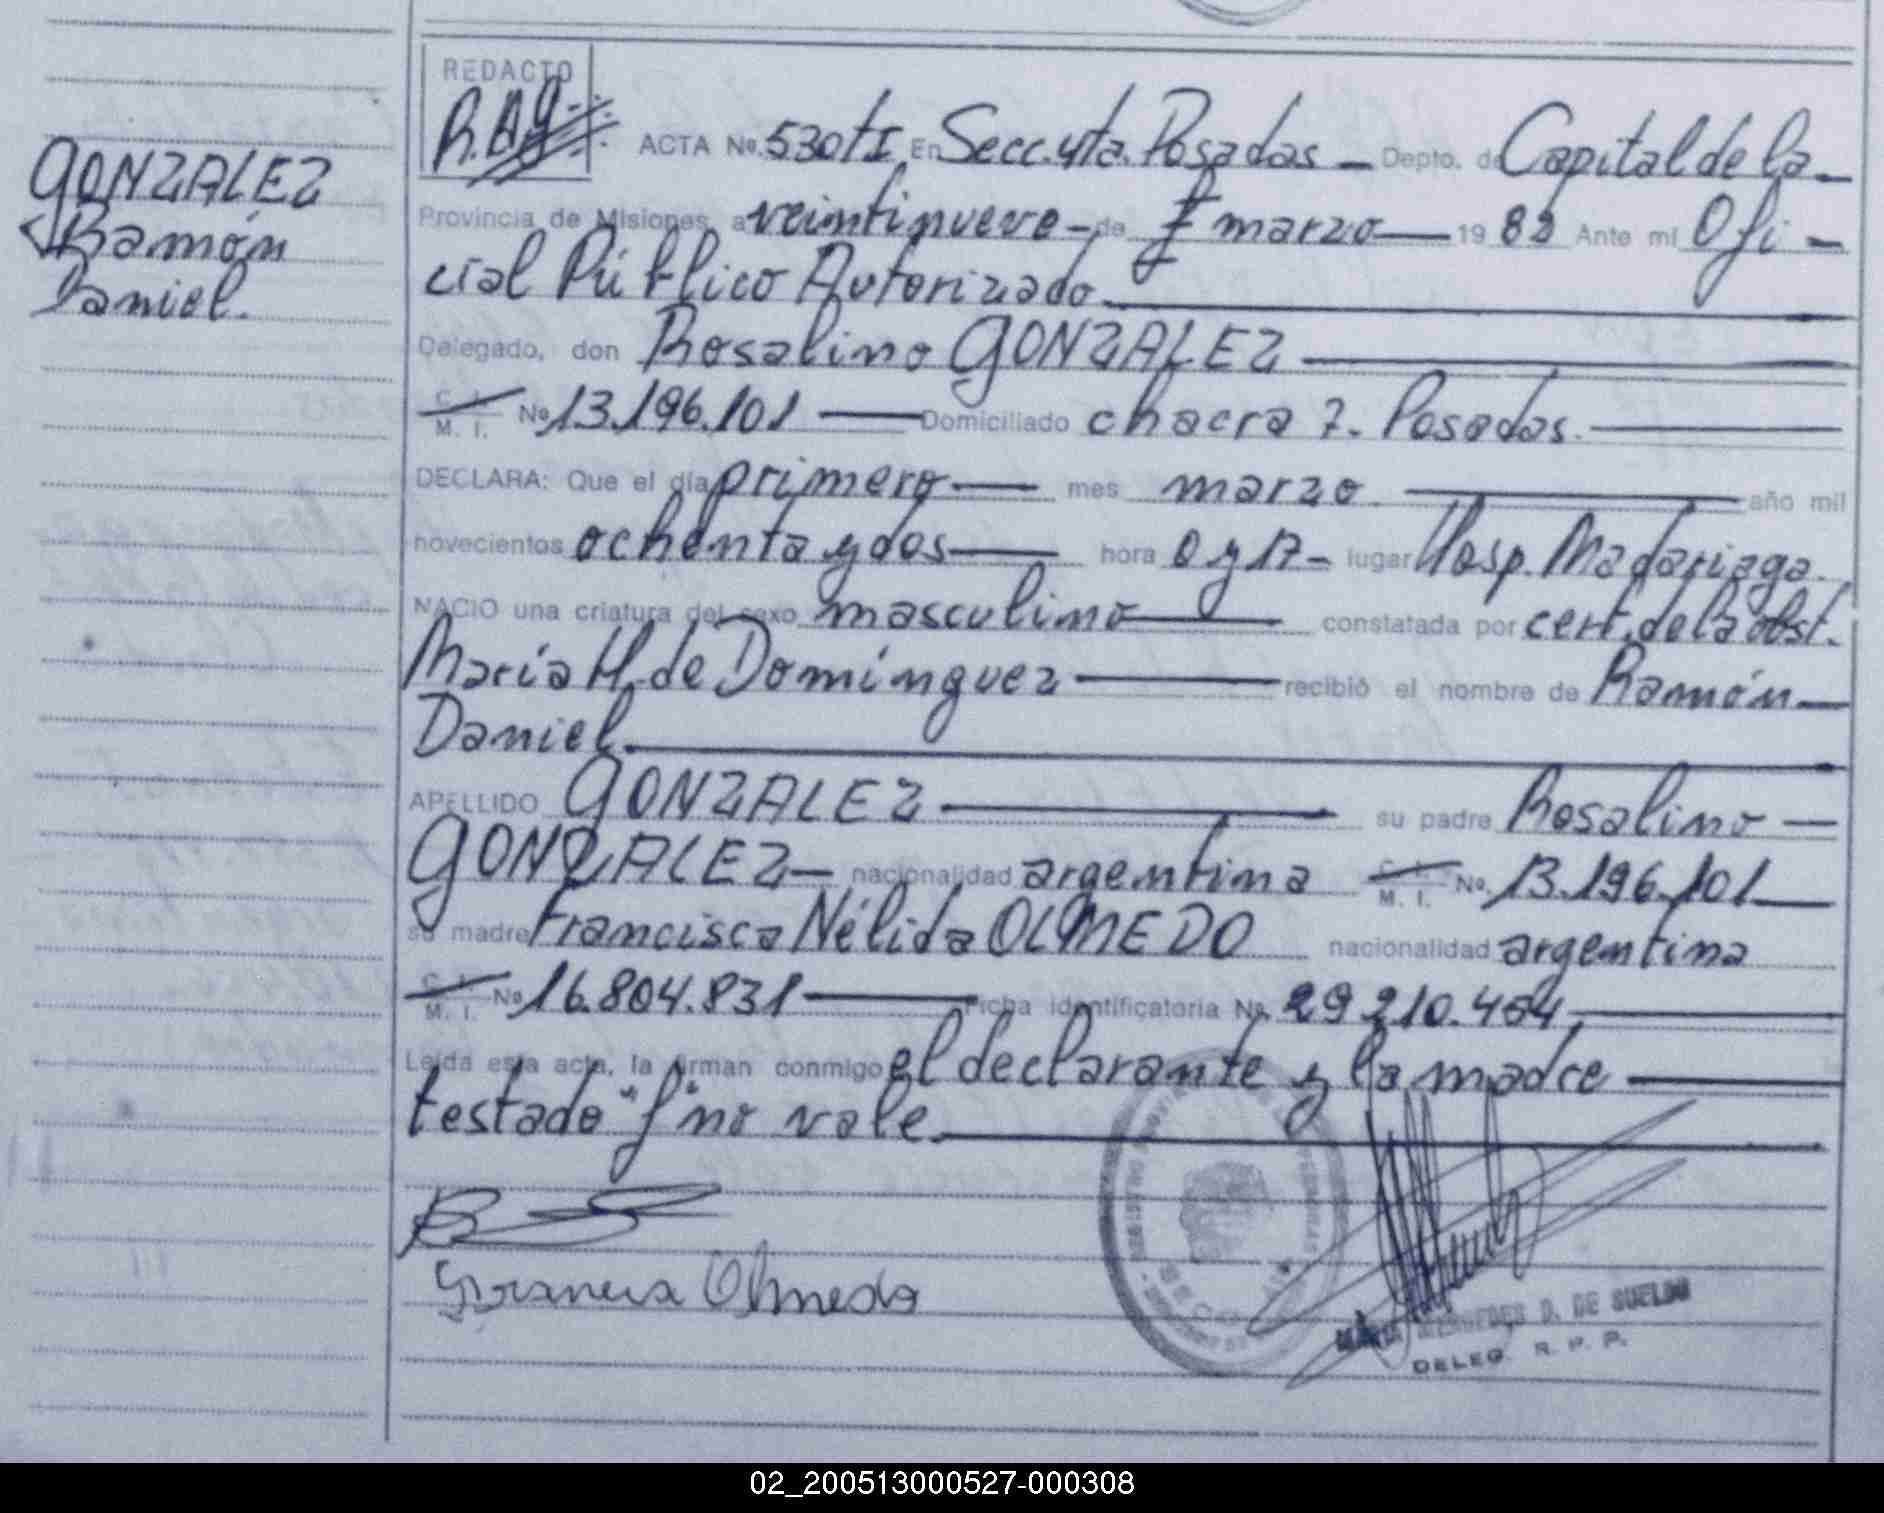 GONZALEZ
Ramón
Daniel.
REDACTO
ACTA Nº 530 tI. En Secc. 4ta. Posadas — Depto. de Capital de la —
Provincia de Misiones, a veintinueve — de f marzo — 19 82 Ante mi Ofi —
cial Público Autorizado
Delegado, don Rosalino GONZALEZ
C. I. M. I. Nº 13.196.101 — Domiciliado chacra 7. Posadas.
DECLARA: Que el día primero — mes marzo — año mil
novecientos ochenta y dos — hora 0 y 17 — lugar Hosp. Madariaga.
NACIO una criatura del sexo masculino — constatada por cert. de la obst.
María H. de Domínguez — recibió el nombre de Ramón —
Daniel.
APELLIDO GONZALEZ — su padre Rosalino —
GONZALEZ — nacionalidad argentina C. I. M. I. No. 13.196.101
su madre Francisca Nélida OLMEDO nacionalidad argentina
C. I. M. I. Nº 16.804.831 — Ficha identificatoria Nº 29.210.454,
Leída esta acta, la firman conmigo el declarante y la madre
testado "f" no vale.
Olmedo
MERCEDES D. DE SUELDO
DELEG. R. P. P.
02_200513000527-000308